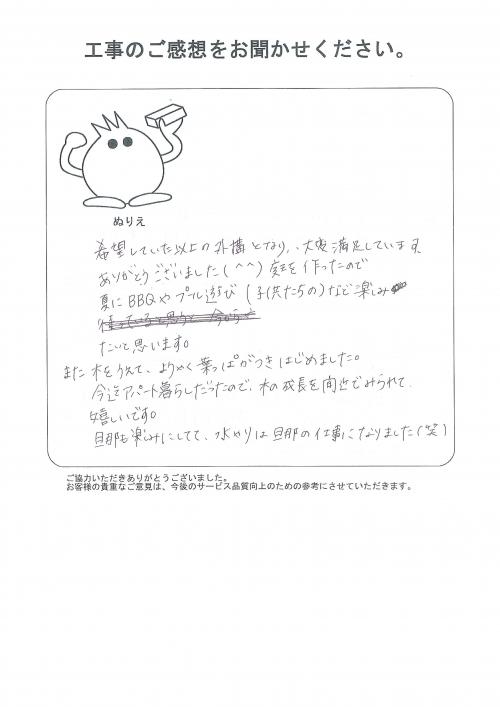 工事のご感想をお聞かせください。
ぬりえ
希望していた以上の外構となり、大変満足しています。
ありがとうございました(^^) 庭を作ったので
夏にBBQやプール遊び(子供たちの)など楽しみ
たいと思います。
また木をうえて、ようやく葉っぱがつきはじめました。
今迄アパート暮らしだったので、木の成長を間近でみられて、
嬉しいです。
旦那も楽しみにしてて、水やりは旦那の仕事になりました(笑)
ご協力いただきありがとうございました。
お客様の貴重なご意見は、今後のサービス品質向上のための参考にさせていただきます。